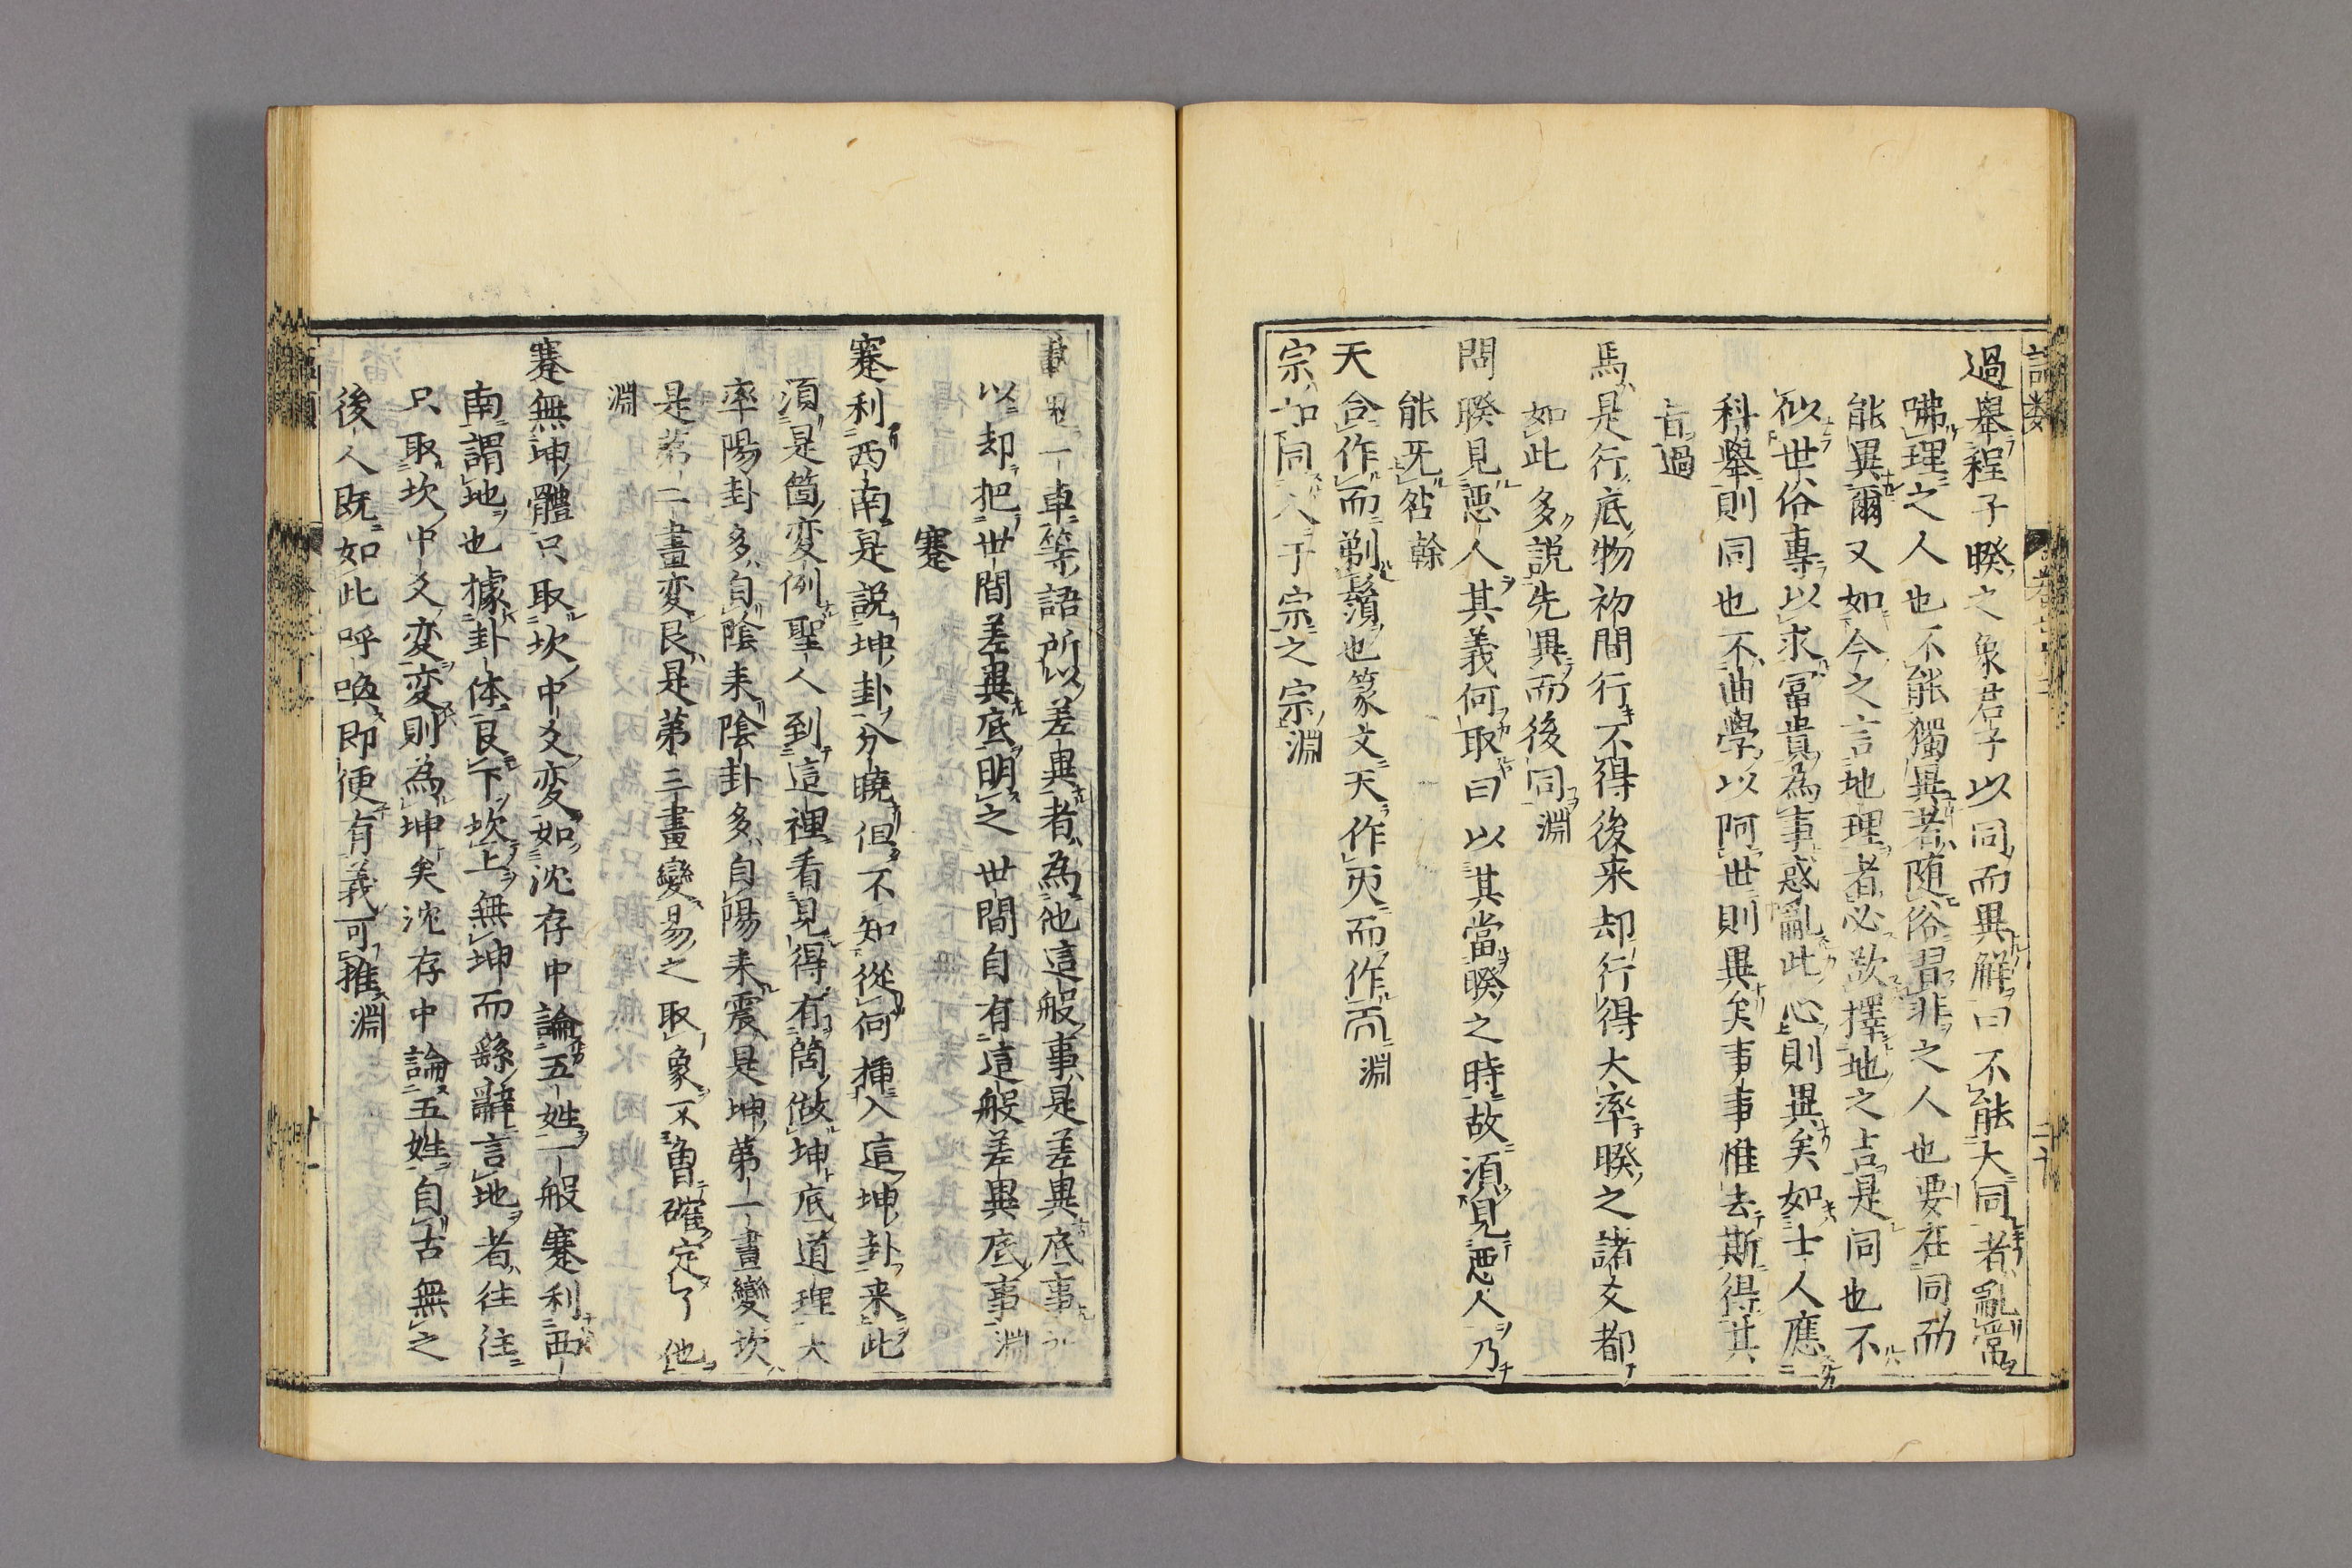 語類
過舉程子睽之象君子以同而異解曰不能大同者亂常
咈理之人也不能獨異者随俗習非之人也要在同而
能異爾又如今之言地理者必欲擇地之吉是同也不
似世俗專以求冨貴為事惑亂此心則異矣如士人應
科舉則同也不曲學以阿世則異矣事事惟去斯得其
旨過
馬是行底物初間行不得後来却行得大率睽之諸爻都
如此多説先異而後同淵
問睽見惡人其義何取曰以其當睽之時故須見惡人乃
能无咎幹
天合作而剃鬚也篆文天作而作淵
宗如同人于宗之宗淵
載鬼一車等語所以差異者為他這般事是差異底事所
以却把世間差異底明之世間自有這般差異底事淵
蹇
蹇利西南是説坤卦分曉但不知從何挿入這坤卦来此
須是箇変例聖人到這裡看見得有箇做坤底道理大
率陽卦多自陰来陰卦多自陽来震是坤第一畫變坎
是第二畫変艮是第三畫變易之取象不曽確定了他
淵
蹇無坤體只取坎中爻変如沈存中論五姓一般蹇利西
南謂地也據卦体艮下坎上無坤而繇辭言地者往往
只取坎中爻変変則為坤矣沈存中論五姓自古無之
後人既如此呼喚即便有義可推淵